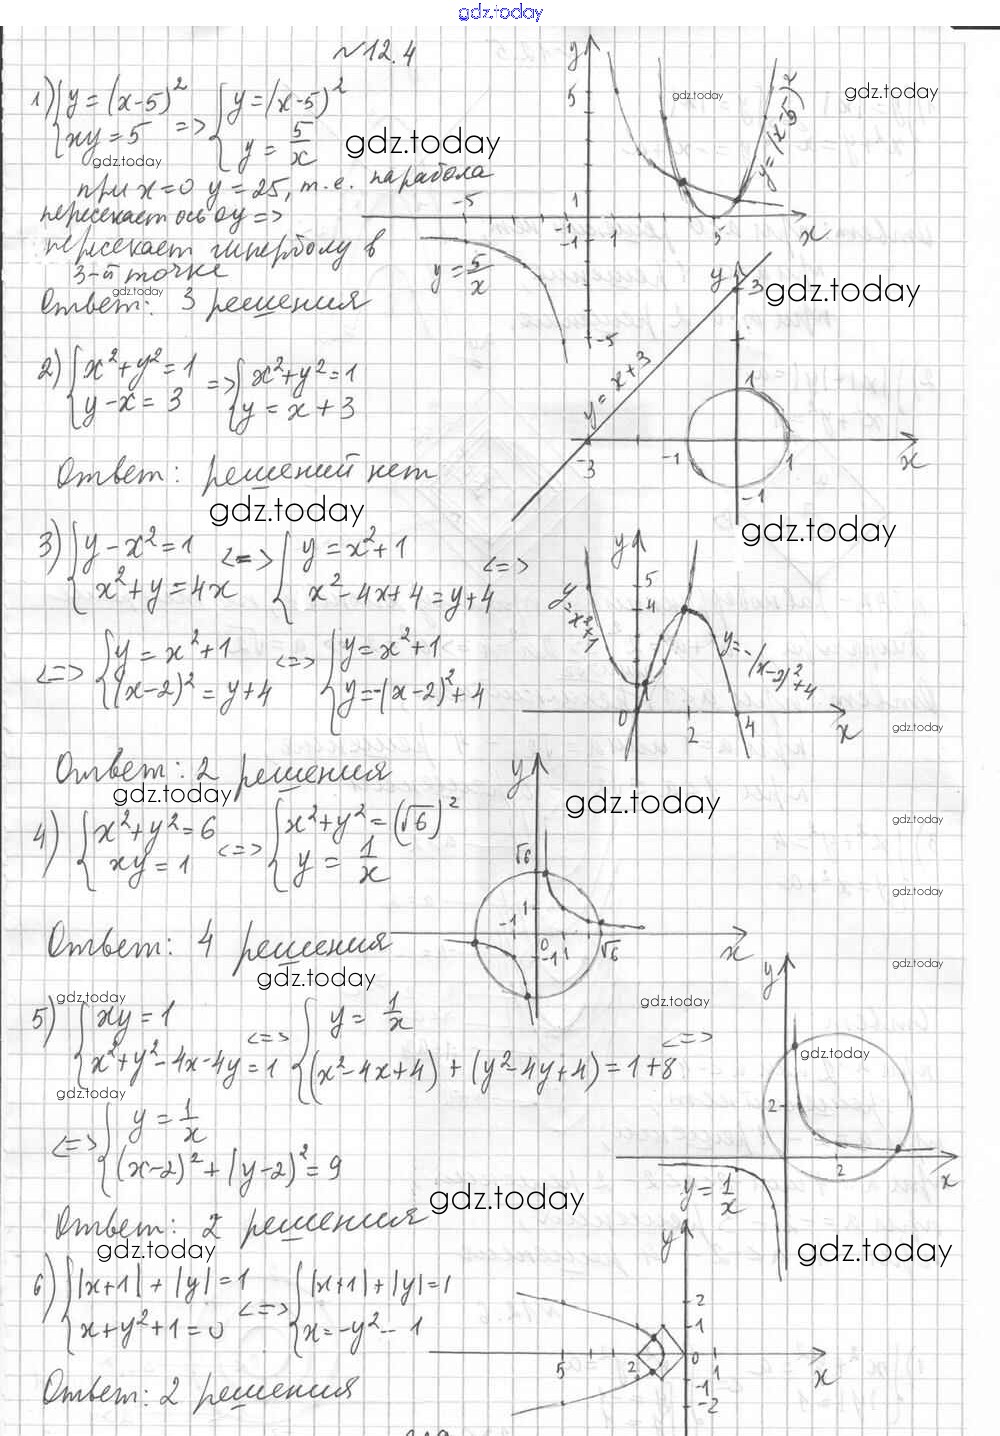 gdz.today
№12.4
1) { y = (x-5)² => { y = (x-5)²
xy = 5 y = 5/x
при x=0 y=25, т.е. парабола
пересекает ось Oy =>
пересекает гиперболу в
3-й точке
Ответ: 3 решения
y
5
1
-5
-1
-1
1
5
x
y=(x-5)²
y = 5/x
-5
gdz.today
gdz.today
gdz.today
gdz.today
gdz.today
gdz.today
2) { x²+y²=1 => { x²+y²=1
y-x=3 y=x+3
Ответ: решений нет
y
3
y = x+3
1
-3
-1
1
x
-1
gdz.today
gdz.today
3) { y-x²=1 <=> { y=x²+1 <=>
x²+y=4x x²-4x+4=y+4
<=> { y=x²+1 <=> { y=x²+1
(x-2)²=y+4 y=-(x-2)²+4
Ответ: 2 решения
y
5
4
y=x²+1
y=-(x-2)²+4
0
2
4
x
gdz.today
gdz.today
gdz.today
4) { x²+y²=6 <=> { x²+y²=(√6)²
xy=1 y=1/x
Ответ: 4 решения
y
√6
1
-1
0
-1
1
√6
x
gdz.today
gdz.today
gdz.today
gdz.today
5) { xy=1 <=> { y=1/x <=>
x²+y²-4x-4y=1 (x²-4x+4)+(y²-4y+4)=1+8
<=> { y=1/x
(x-2)²+(y-2)²=9
Ответ: 2 решения
y
2
2
x
y=1/x
gdz.today
gdz.today
gdz.today
gdz.today
gdz.today
gdz.today
gdz.today
6) { |x+1|+|y|=1 <=> { |x+1|+|y|=1
x+y²+1=0 x=-y²-1
Ответ: 2 решения
y
2
1
5
2
0
1
x
-1
-2